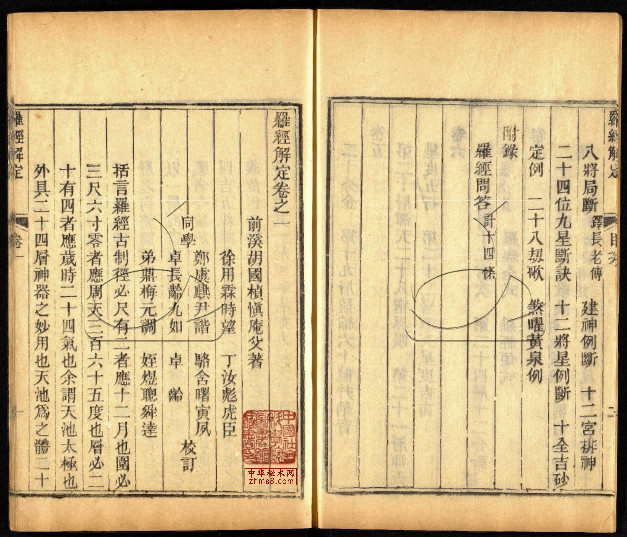 羅經解定 目錄
八將局斷 鐸長老傳 建神例斷 十二宮排神
二十四位九星斷訣 十二將星例斷 十全吉砂
定例 二十八刼歌 煞曜黃泉例
附錄
羅經問答 計十四條
羅經解定卷之一
前溪胡國楨愼庵父著
徐用霖時望 丁汝彪虎臣
鄭虞麒尹諧 駱舍曙寅夙
同學 卓長齡九如 卓齡 校訂
弟鼎梅元調 姪焜聰舜達
括言羅經古制徑必尺有二者應十二月也圍必
三尺六寸零者應周天三百六十五度也層必二
十有四者應歲時二十四氣也余謂天池太極也
外具二十四層神器之妙用也天池爲之體二十
羅經解定 卷一
中華秘术网
zhms8.com